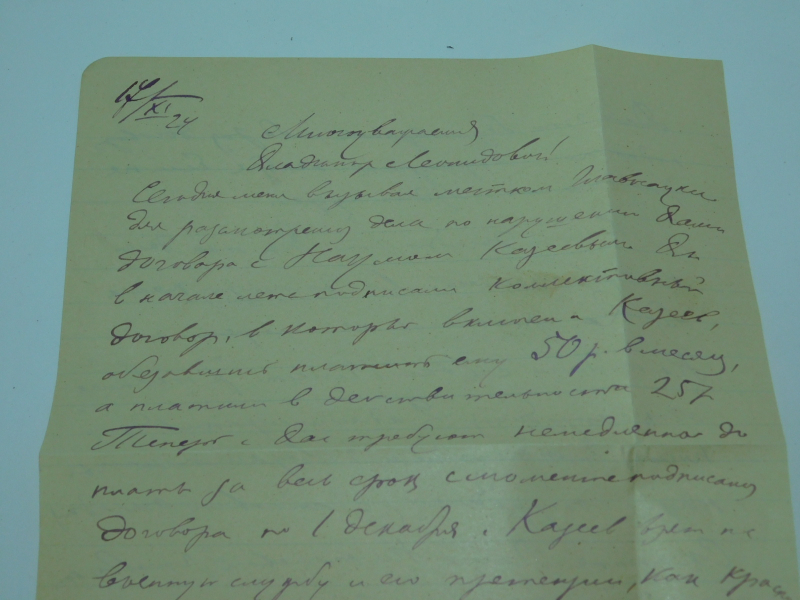 17/XI 24
Многоуважаемый
Владимир Леонидович!
Сегодня меня вызывал местком Главнауки
для разсмотрения дела по нарушении Вами
договора с Наумом Казеевым. Вы
в начале лета подписали коллективный
договор, в который включен и Казеев,
обязавшись платить ему 50 р. в месяц,
а платили в действительности 25 р
Теперь с Вас требуют немедленно до
платы за весь срок с момента подписания
договора по 1 декабря. Казеев взят на
военную службу и его претензии, как